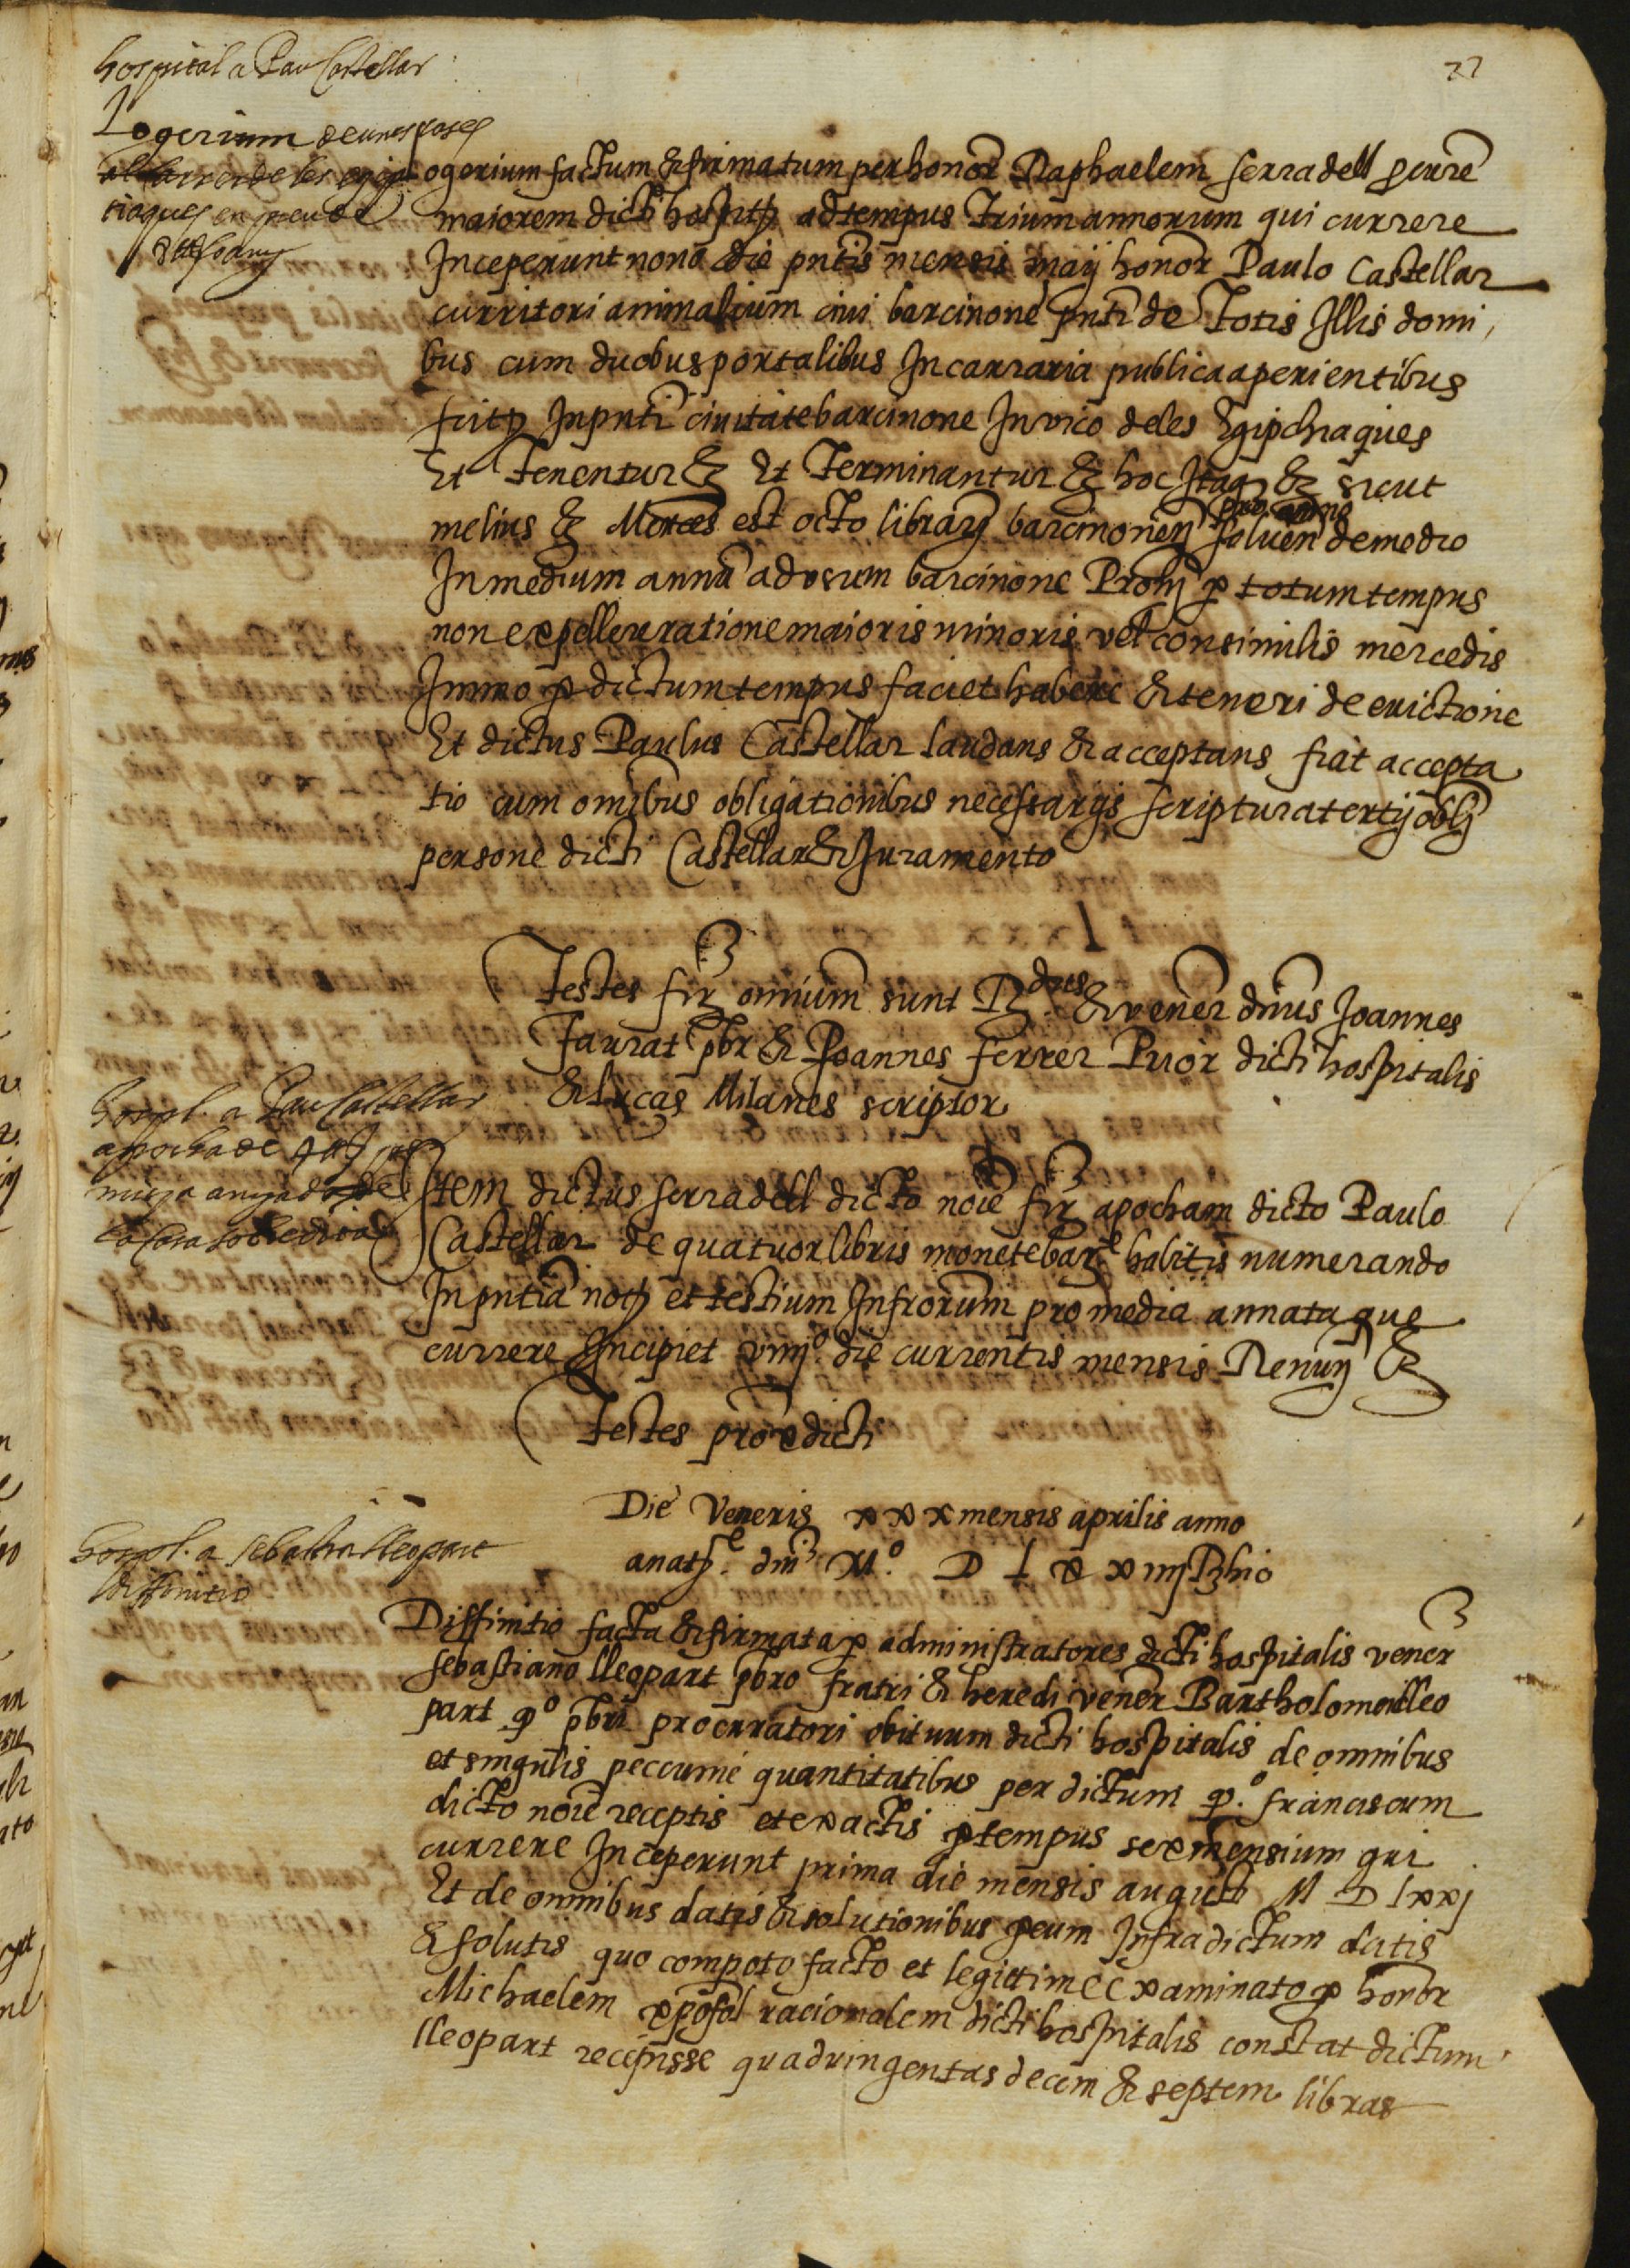 hospital a Pau Castellar
77
Logerium de unes cases
al carrer de les egip
tiaques en preu de
ogerium factum & firmatum per honor Raphaelem serradell
maiorem dicti hospitalis ad tempus Trium annorum qui currere
Inceperunt nona die pntis mensis maij honor Paulo Castellar
curritori animalium civi barcinone pnti de Totis Illis domi
bus cum duobus portalibus In carraria publica aperientibus
In pnti civitate barcinone In vico de les Egipchiaques
Et Tenentur & Et Terminantur & hoc Itaq & sicut
melius & Merces est octo librarum barcinonen pro anno solven de medio
In medium annu ad usum barcinone Promj p totum tempus
non expellere ratione maioris minoris vel consimilis mercedis
Immo p dictum tempus faciet habere & teneri de evictione
Et dictus Paulus Castellar laudans & acceptans fiat accepta
tio cum omibus obligationibus necessarijs scriptura tertij oblj
persone dicti Castellar & Juramento
Testes fir omnium sunt Rdus & vener dnus Joannes
Faurat pbr & Joannes ferrer Prior dicti hospitalis
& lucas Milanes scriptor
hospl. a Pau Castellar
apocha de
mieja anyada de
la casa sobredita
Item dictus serradell dicto noie fir apocham dicto Paulo
Castellar de quatuor libris monete bare habitis numerando
In pntia noty et testium Infrorum pro media annata que
currere Incipiet viiijo die currentis mensis Renunj &
Testes predicti
Die Veneris xxx mensis aprilis anno
a nate. dni Mo. D L x x iiij
hospl. a sebastia lleopart
diffinitio
Diffinitio facta & firmata p administratores dicti hospitalis vener
sebastiano lleopart pbro fratri & heredi vener Bartholomei lleo
part qo pbri procuratori obituum dicti hospitalis de omnibus
et singulis peccunie quantitatibus per dictum qo. franciscum
dicto noie receptis et exactis p tempus sex mensium qui
currere Inceperunt prima die mensis augusti M D lxxj
Et de omnibus datis & solutionibus p eum Infradictum datis
& solutis quo compoto facto et legittime examinato p honor
Michaelem racionalem dicti hospitalis constat dictum
lleopart recepisse quadringentas decem & septem libras